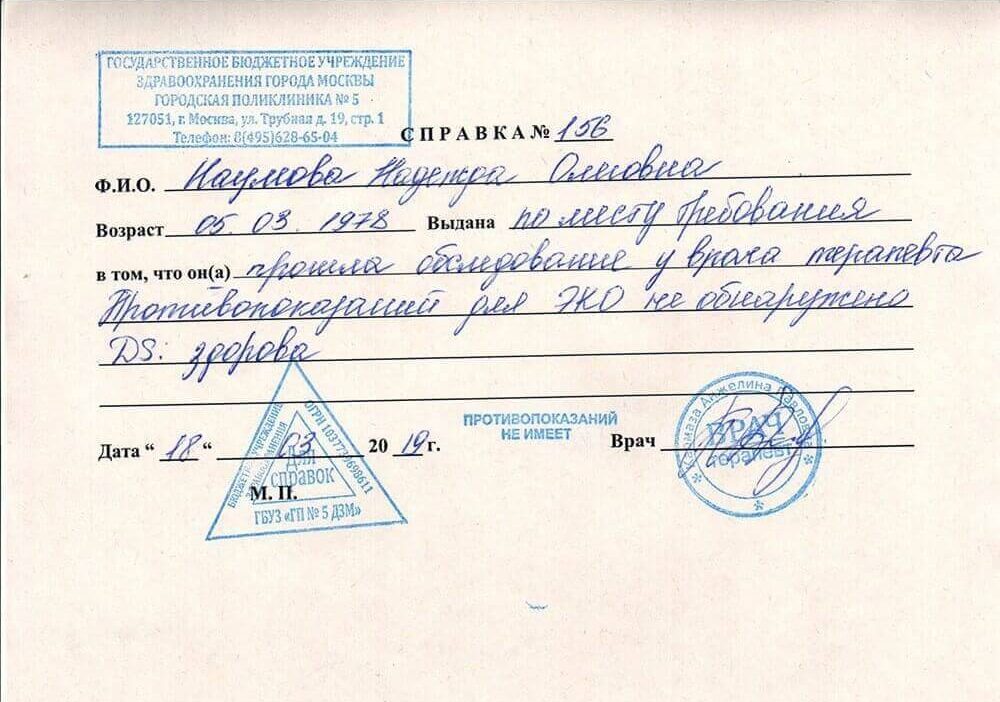 ГОСУДАРСТВЕННОЕ БЮДЖЕТНОЕ УЧРЕЖДЕНИЕ
ЗДРАВООХРАНЕНИЯ ГОРОДА МОСКВЫ
ГОРОДСКАЯ ПОЛИКЛИНИКА № 5
127051, г. Москва, ул. Трубная д. 19, стр. 1
Телефон: 8(495)628-65-04
СПРАВКА № 156
Ф.И.О. Наумова Надежда Олеговна
Возраст 05. 03. 1978 Выдана по месту требования
в том, что он(а) прошла обследование у врача терапевта
Противопоказаний для ЭКО не обнаружено
DS: здорова
ПРОТИВОПОКАЗАНИЙ
НЕ ИМЕЕТ
Дата “ 18 “ 03 20 19 г.
Врач
Анжелина Павловна
ВРАЧ
терапевт
БЮДЖЕТНОЕ УЧРЕЖДЕНИЕ
ЗДРАВООХРАНЕНИЯ
ОГРН
Для
справок
М. П.
ГБУЗ «ГП № 5 ДЗМ»